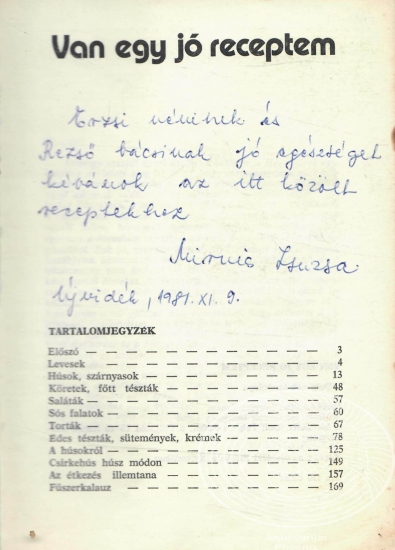 Van egy jó receptem
Erzsi néninek és
Rezső bácsinak jó egészséget
kívánok az itt közölt
receptekhez
Mirnics Zsuzsa
Újvidék, 1981. XI. 9.
TARTALOMJEGYZÉK
Előszó — — — — — — — — — — — 3
Levesek — — — — — — — — — — 4
Húsok, szárnyasok — — — — — — — — 13
Köretek, főtt tészták — — — — — — — — 48
Saláták — — — — — — — — — — 57
Sós falatok — — — — — — — — — — 60
Torták — — — — — — — — — — — 67
Édes tészták, sütemények, krémek — — — — — 78
A húsokról — — — — — — — — — — 125
Csirkehús húsz módon — — — — — — — 149
Az étkezés illemtana — — — — — — — 157
Fűszerkalauz — — — — — — — — — 169